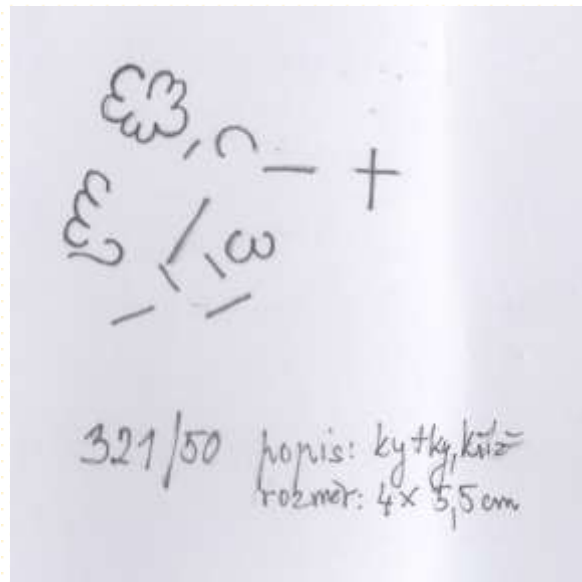 321/50 popis: kytky, kříž
rozměr: 4 x 5,5 cm